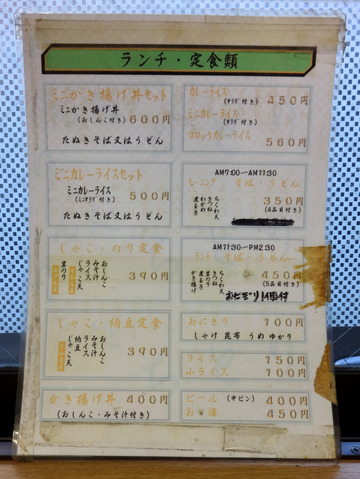 ランチ・定食類
ミニかき揚げ丼セット
ミニかき揚げ丼
(おしんこ付き) 600円
たぬきそば又はうどん
ミニカレーライスセット
ミニカレーライス
(ミニサラダ付き) 500円
たぬきそば又はうどん
じゃこ・のり定食
おしんこ
みそ汁
ライス
じゃこ天
岩のり
390円
じゃこ・納豆定食
おしんこ
みそ汁
ライス
納豆
じゃこ天
390円
かき揚げ丼 400円
(おしんこ・みそ汁付き)
カレーライス
(サラダ付き) 450円
ミニカレーライス
(サラダ付き)
コロッケカレーライス
560円
AM7:00~AM11:30
モーニング そば・うどん
ちくわ天
きつね
わかめ
煮玉子
350円
(4品目付き)
AM11:30~PM2:30
ランチ そば・うどん
ちくわ天
きつね
煮玉子
岩のり
かき揚げ
450円
(5品目付き)
おにぎり1個付
おにぎり 100円
しゃけ 昆布 うめ ゆかり
ライス 150円
小ライス 100円
ビール (中ビン) 400円
お酒 450円